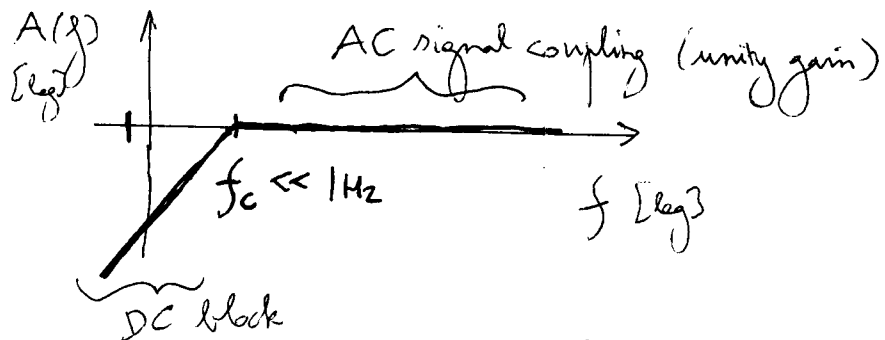 A(f)
[log]
AC signal coupling (unity gain)
fc << 1Hz
f [log]
DC block